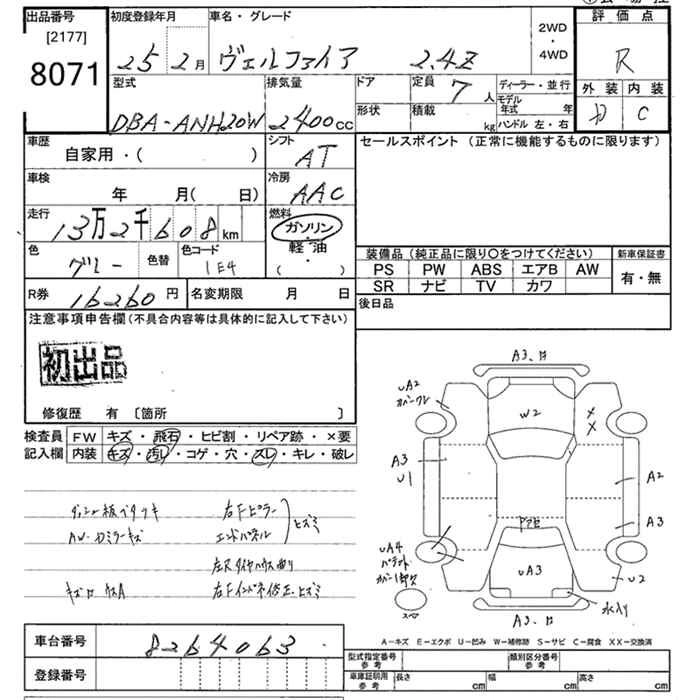 出品番号
[2177]
8071
初度登録年月
25 2月
車名・グレード
ヴェルファイア 2.4Z
2WD
・
4WD
評価点
R
外装 内装
D C
型式
DBA-ANH20W
排気量
2400cc
ドア
定員 7人
形状
積載 kg
ディーラー・並行
モデル年式 年
ハンドル 左・右
車歴
自家用・( )
シフト
AT
セールスポイント (正常に機能するものに限ります)
車検
年 月( 日)
冷房
AAC
走行
13万2千608km
燃料
ガソリン
・
軽油
( )
色
グレー
色替
色コード
1E4
装備品 (純正品に限り○をつけてください)
新車保証書
PS PW ABS エアB AW
SR ナビ TV カワ
有・無
R券 16260円
名変期限 月 日
後日品
注意事項申告欄 (不具合内容等は具体的に記入して下さい)
初出品
修復歴 有 〔箇所 〕
検査員記入欄
FW キズ・飛石・ヒビ割・リペア跡・×要
内装 キズ・汚レ・コゲ・穴・スレ・キレ・破レ
右Fピラー
エンドパネル
ヒズミ
AW・Dミラーキズ
A3、
UA2
W2
A3
U1
A2
A3
UA4
UA3
U2
スペア
A3、
A-キズ E-エクボ U-凹み W-補修跡 S-サビ C-腐食 XX-交換済
車台番号 8264063
登録番号
型式指定番号 参考
類別区分番号 参考
車庫証明用 参考
長さ cm
幅 cm
高さ cm